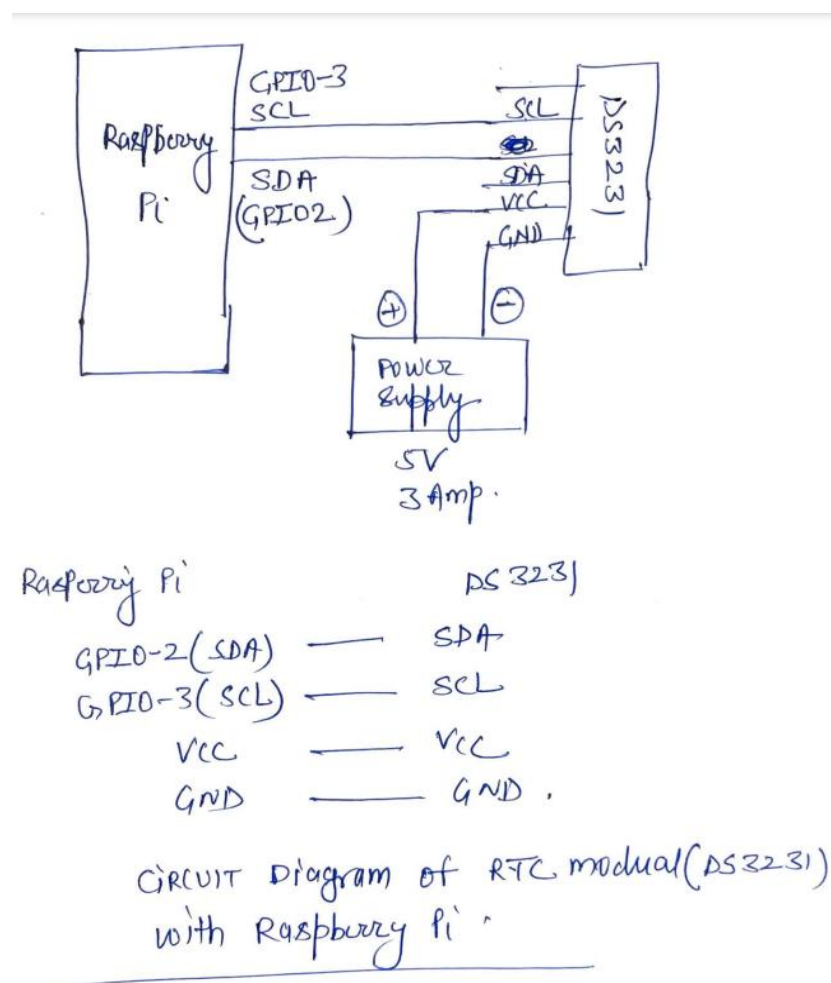 GPIO-3
SCL
Raspberry
Pi
SDA
(GPIO2)
SCL
SDA
VCC
GND
DS3231
+
-
Power
Supply
5V
3 Amp.
Rasperry Pi DS3231
GPIO-2(SDA) — SDA
GPIO-3(SCL) — SCL
VCC — VCC
GND — GND.
CIRCUIT Diagram of RTC modual(DS3231)
with Raspburry Pi.